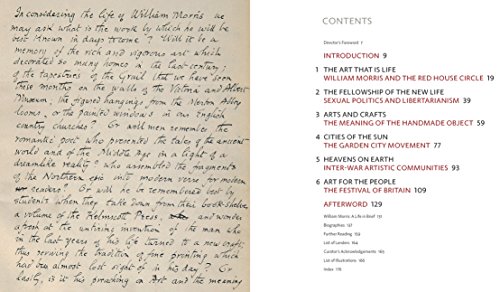 In considering the life of William Morris we
may ask what is the work by which he will be
best known in days to come? Will it be a
memory of the rich and vigorous art which
decorated so many homes in the last century;
of the tapestries of the Grail that we have seen
these months on the walls of the Victoria and Albert
Museum, the figured hangings from the Merton Abbey
looms, or the painted windows in our English
country churches? Or will men remember the
romantic poet who presented the tales of the ancient
world and of the Middle Age in a light of a
dreamlike reality? who assembled the fragments
of the Northern epic into modern verse for modern
readers? Or will he be remembered best by
students when they take down from their book-shelves
a volume of the Kelmscott Press, and wonder
afresh at the untiring invention of the man who
in the last years of his life turned to a new craft,
thus reviving the tradition of fine printing which
had been almost lost sight of in his day? Or
lastly, is it his preaching on Art and the meaning
CONTENTS
Director's Foreword 7
INTRODUCTION 9
1 THE ART THAT IS LIFE
WILLIAM MORRIS AND THE RED HOUSE CIRCLE 19
2 THE FELLOWSHIP OF THE NEW LIFE
SEXUAL POLITICS AND LIBERTARIANISM 39
3 ARTS AND CRAFTS
THE MEANING OF THE HANDMADE OBJECT 59
4 CITIES OF THE SUN
THE GARDEN CITY MOVEMENT 77
5 HEAVENS ON EARTH
INTER-WAR ARTISTIC COMMUNITIES 93
6 ART FOR THE PEOPLE
THE FESTIVAL OF BRITAIN 109
AFTERWORD 129
William Morris: A Life in Brief 131
Biographies 137
Further Reading 159
List of Lenders 164
Curator's Acknowledgements 165
List of Illustrations 166
Index 170